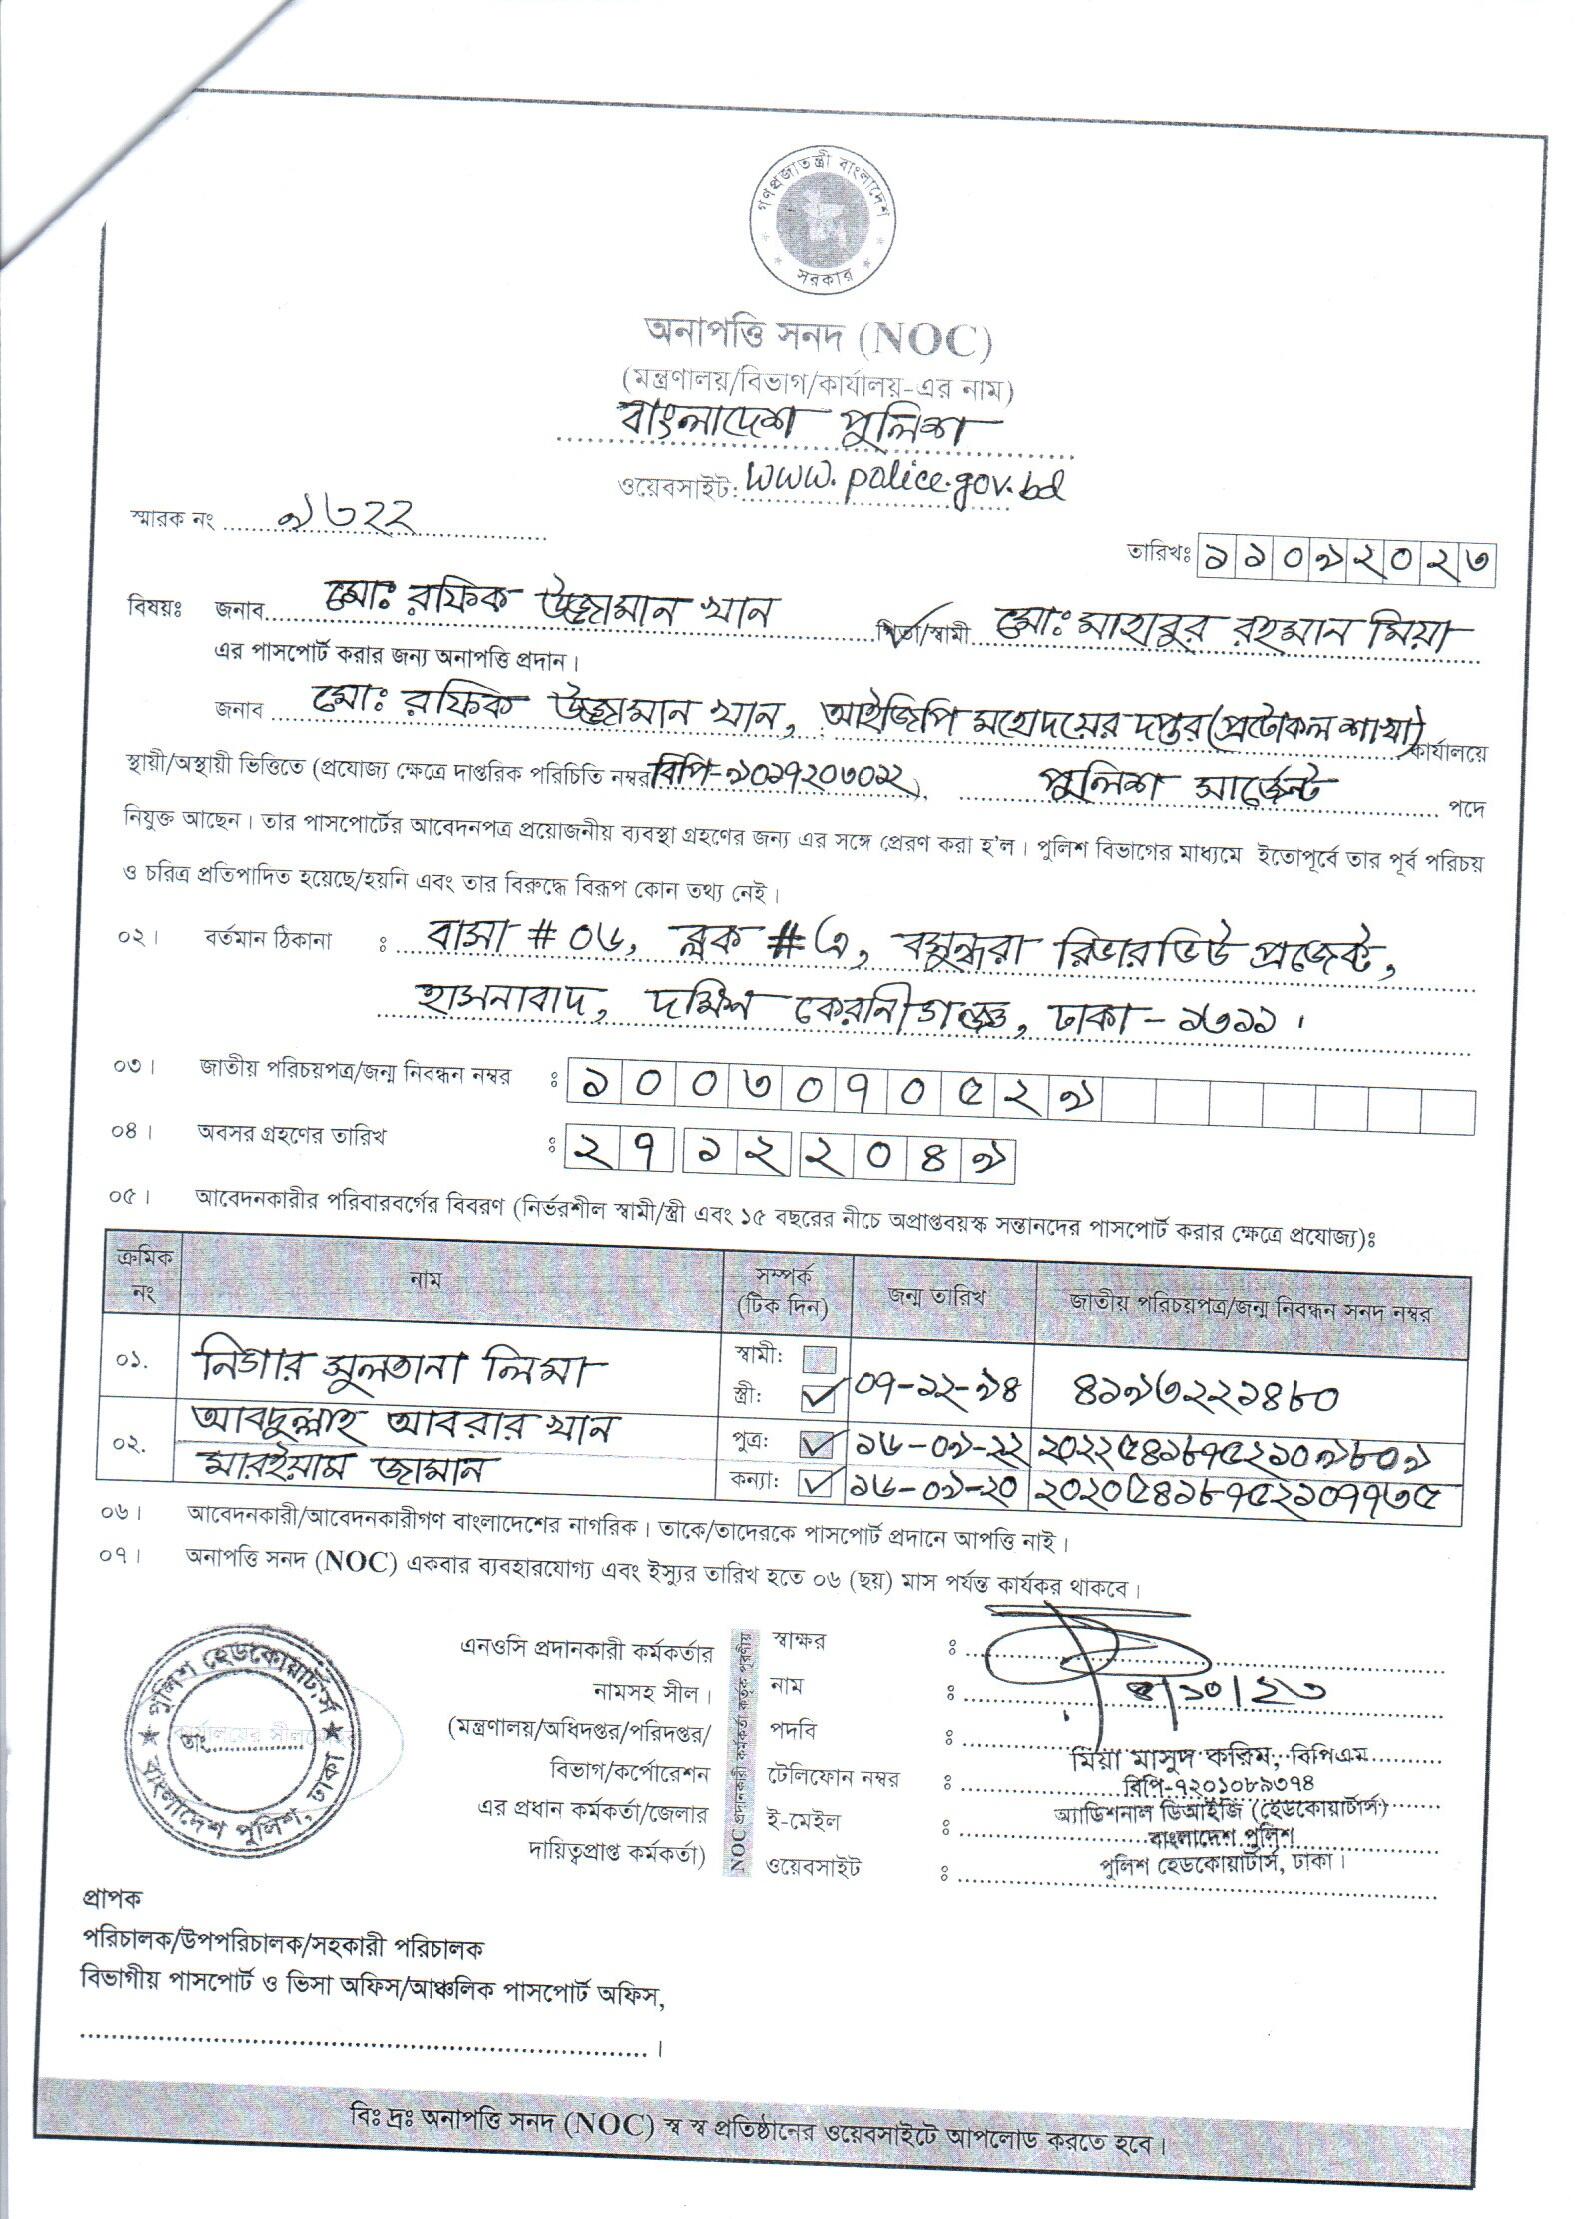 গণপ্রজাতন্ত্রী বাংলাদেশ
সরকার
অনাপত্তি সনদ (NOC)
(মন্ত্রণালয়/বিভাগ/কার্যালয়-এর নাম)
বাংলাদেশ পুলিশ
ওয়েবসাইট: www.police.gov.bd
স্মারক নং ৯৬২২
তারিখঃ ১১০৯২০২৩
বিষয়ঃ জনাব মোঃ রফিক উজ্জামান খান পিতা/স্বামী মোঃ মাহাবুর রহমান মিয়া
এর পাসপোর্ট করার জন্য অনাপত্তি প্রদান।
জনাব মোঃ রফিক উজ্জামান খান, আইজিপি মহোদয়ের দপ্তর (প্রটোকল শাখা) কার্যালয়ে
স্থায়ী/অস্থায়ী ভিত্তিতে (প্রযোজ্য ক্ষেত্রে দাপ্তরিক পরিচিতি নম্বর বিপি-৯০১৭২০৩০১২), পুলিশ সার্জেন্ট পদে
নিযুক্ত আছেন। তার পাসপোর্টের আবেদনপত্র প্রয়োজনীয় ব্যবস্থা গ্রহণের জন্য এর সঙ্গে প্রেরণ করা হ'ল। পুলিশ বিভাগের মাধ্যমে ইতোপূর্বে তার পূর্ব পরিচয়
ও চরিত্র প্রতিপাদিত হয়েছে/হয়নি এবং তার বিরুদ্ধে বিরূপ কোন তথ্য নেই।
০২। বর্তমান ঠিকানা ঃ বাসা # ০৬, ব্লক # এ, বসুন্ধরা রিভারভিউ প্রজেক্ট,
হাসনাবাদ, দক্ষিণ কেরানীগঞ্জ, ঢাকা - ১৩১১।
০৩। জাতীয় পরিচয়পত্র/জন্ম নিবন্ধন নম্বর ঃ ১০০৩০৭০৫২৯
০৪। অবসর গ্রহণের তারিখ ঃ ২৭ ১২ ২০৪৯
০৫। আবেদনকারীর পরিবারবর্গের বিবরণ (নির্ভরশীল স্বামী/স্ত্রী এবং ১৫ বছরের নীচে অপ্রাপ্তবয়স্ক সন্তানদের পাসপোর্ট করার ক্ষেত্রে প্রযোজ্য)ঃ
ক্রমিক নং নাম সম্পর্ক (টিক দিন) জন্ম তারিখ জাতীয় পরিচয়পত্র/জন্ম নিবন্ধন সনদ নম্বর
০১. নিগার সুলতানা লিমা স্বামী: স্ত্রী: ০৭-১২-৯৪ ৪১৯৩২২১৪৮০
০২. আবদুল্লাহ আবরার খান পুত্র: ১৬-০৯-২২ ২০২২৫৪১৮৭৫২১০৯৮০৯
মারইয়াম জামান কন্যা: ১৬-০৯-২০ ২০২০৫৪১৮৭৫২১০৭৭৩৫
০৬। আবেদনকারী/আবেদনকারীগণ বাংলাদেশের নাগরিক। তাকে/তাদেরকে পাসপোর্ট প্রদানে আপত্তি নাই।
০৭। অনাপত্তি সনদ (NOC) একবার ব্যবহারযোগ্য এবং ইস্যুর তারিখ হতে ০৬ (ছয়) মাস পর্যন্ত কার্যকর থাকবে।
পুলিশ হেডকোয়ার্টার্স
তাং
বাংলাদেশ পুলিশ, ঢাকা
কার্যালয়ের সীল
এনওসি প্রদানকারী কর্মকর্তার
নামসহ সীল।
(মন্ত্রণালয়/অধিদপ্তর/পরিদপ্তর/
বিভাগ/কর্পোরেশন
এর প্রধান কর্মকর্তা/জেলার
দায়িত্বপ্রাপ্ত কর্মকর্তা)
NOC প্রদানকারী কর্মকর্তা কর্তৃক পূরণীয়
স্বাক্ষর ঃ
নাম ঃ /১০/২৩
পদবি ঃ
টেলিফোন নম্বর ঃ
ই-মেইল ঃ
ওয়েবসাইট ঃ
মিয়া মাসুদ করিম, বিপিএম
বিপি-৭২০১০৮৯৩৭৪
অ্যাডিশনাল ডিআইজি (হেডকোয়ার্টার্স)
বাংলাদেশ পুলিশ
পুলিশ হেডকোয়ার্টার্স, ঢাকা।
প্রাপক
পরিচালক/উপপরিচালক/সহকারী পরিচালক
বিভাগীয় পাসপোর্ট ও ভিসা অফিস/আঞ্চলিক পাসপোর্ট অফিস,
।
বিঃ দ্রঃ অনাপত্তি সনদ (NOC) স্ব স্ব প্রতিষ্ঠানের ওয়েবসাইটে আপলোড করতে হবে।